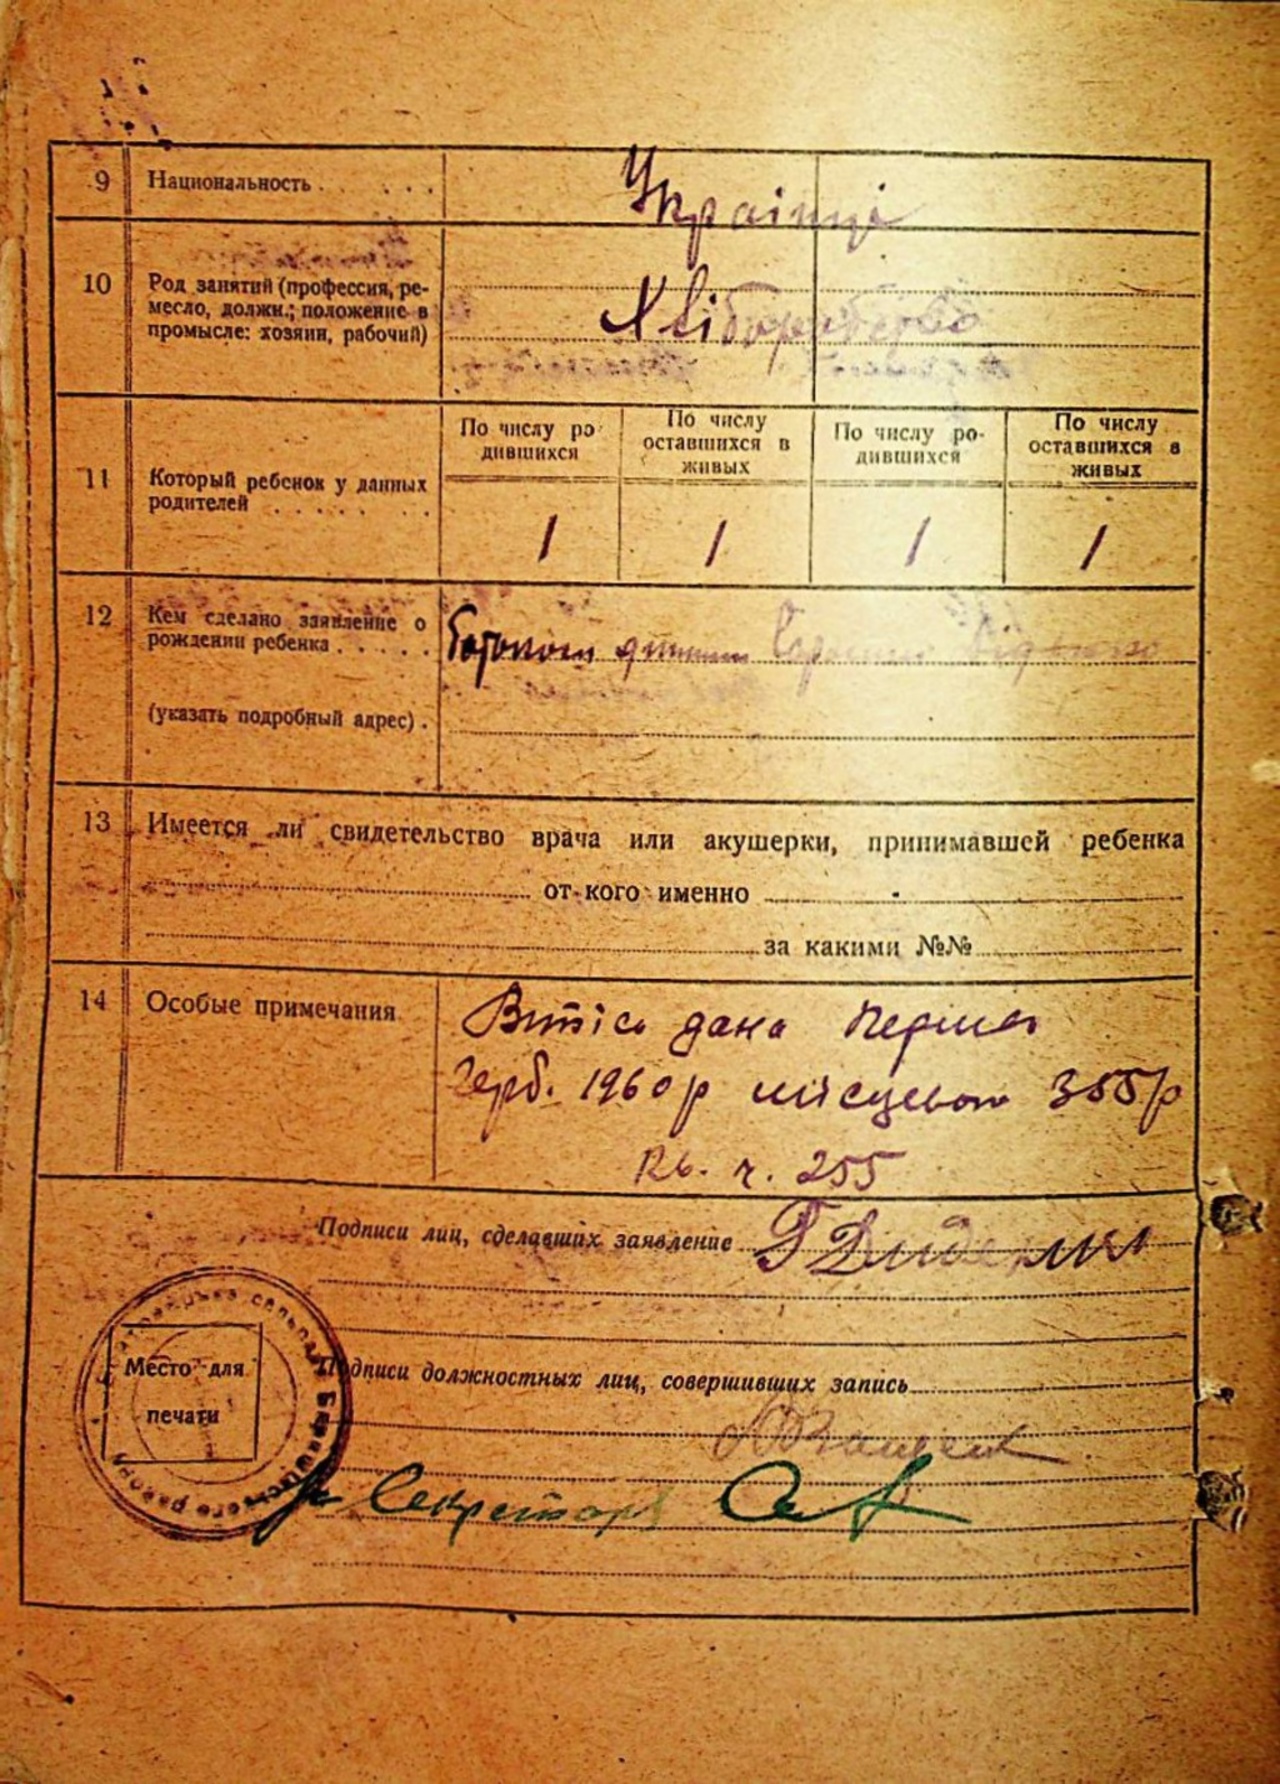 9 Национальность . . . . . Українці
10 Род занятий (профессия, ре-
месло, должн.; положение в
промысле: хозяин, рабочий)
Хліборобство
По числу ро-
дившихся
По числу
оставшихся в
живых
По числу ро-
дившихся
По числу
оставшихся в
живых
11 Который ребенок у данных
родителей . . . . . . .
1 1 1 1
12 Кем сделано заявление о
рождении ребенка . . . . .
(указать подробный адрес) .
13 Имеется ли свидетельство врача или акушерки, принимавшей ребенка
от кого именно
за какими №№
14 Особые примечания
дана
герб. 1960р місцевого 355р
Кв. ч. 255
Подписи лиц, сделавших заявление
Место для
печати
сельрада
Баришівського району
Подписи должностных лиц, совершивших запись
Секретар